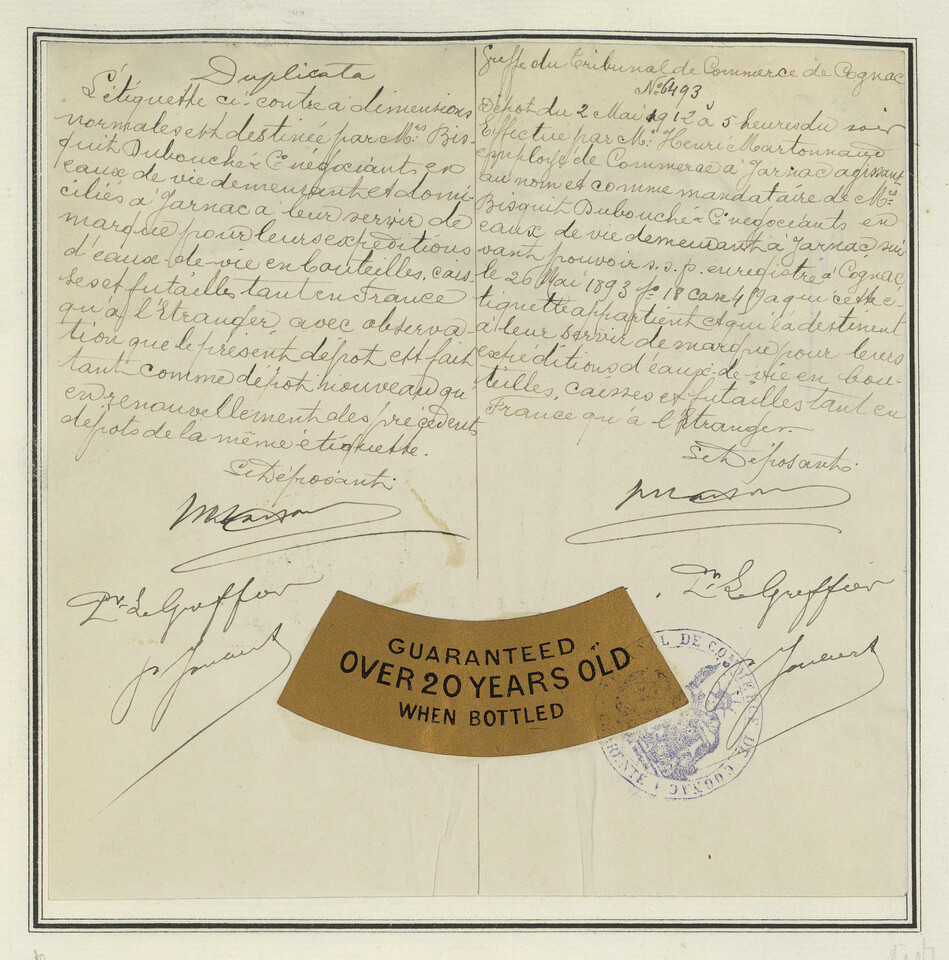 Duplicata
L'étiquette ci-contre à dimensions
normales est destinée par Mrs Bis-
quit Dubouché & Co négociants en
eaux de vie demeurant et domi-
ciliés à Jarnac à leur servir de
marque pour leurs expéditions
d'eaux-de-vie en bouteilles, cais-
ses et futailles tant en France
qu'à l'Etranger, avec observa-
tion que le présent dépôt est fait
tant comme dépôt nouveau qu'
en renouvellement des précédents
dépôts de la même étiquette.
Le Déposant.
Pr Le Greffier
Greffe du Tribunal de Commerce de Cognac
No 6493
Dépôt du 2 Mai 1912 à 5 heures du soir
Effectué par Mr Henri Martonnaud
employé de Commerce à Jarnac agissant
au nom et comme mandataire de Mrs
Bisquit Dubouché & Co négociants en
eaux de vie demeurant à Jarnac sui-
vant pouvoir s.s.p. enregistré à Cognac,
le 26 Mai 1893 fo 18 case 459 a qui cette é-
tiquette appartient et qui la destinent
à leur servir de marque pour leurs
expéditions d'eaux-de-vie en bou-
teilles, caisses et futailles tant en
France qu'à l'Etranger.
Le Déposant.
Pr Le Greffier
GUARANTEED
OVER 20 YEARS OLD
WHEN BOTTLED
DE COMMERCE DE COGNAC